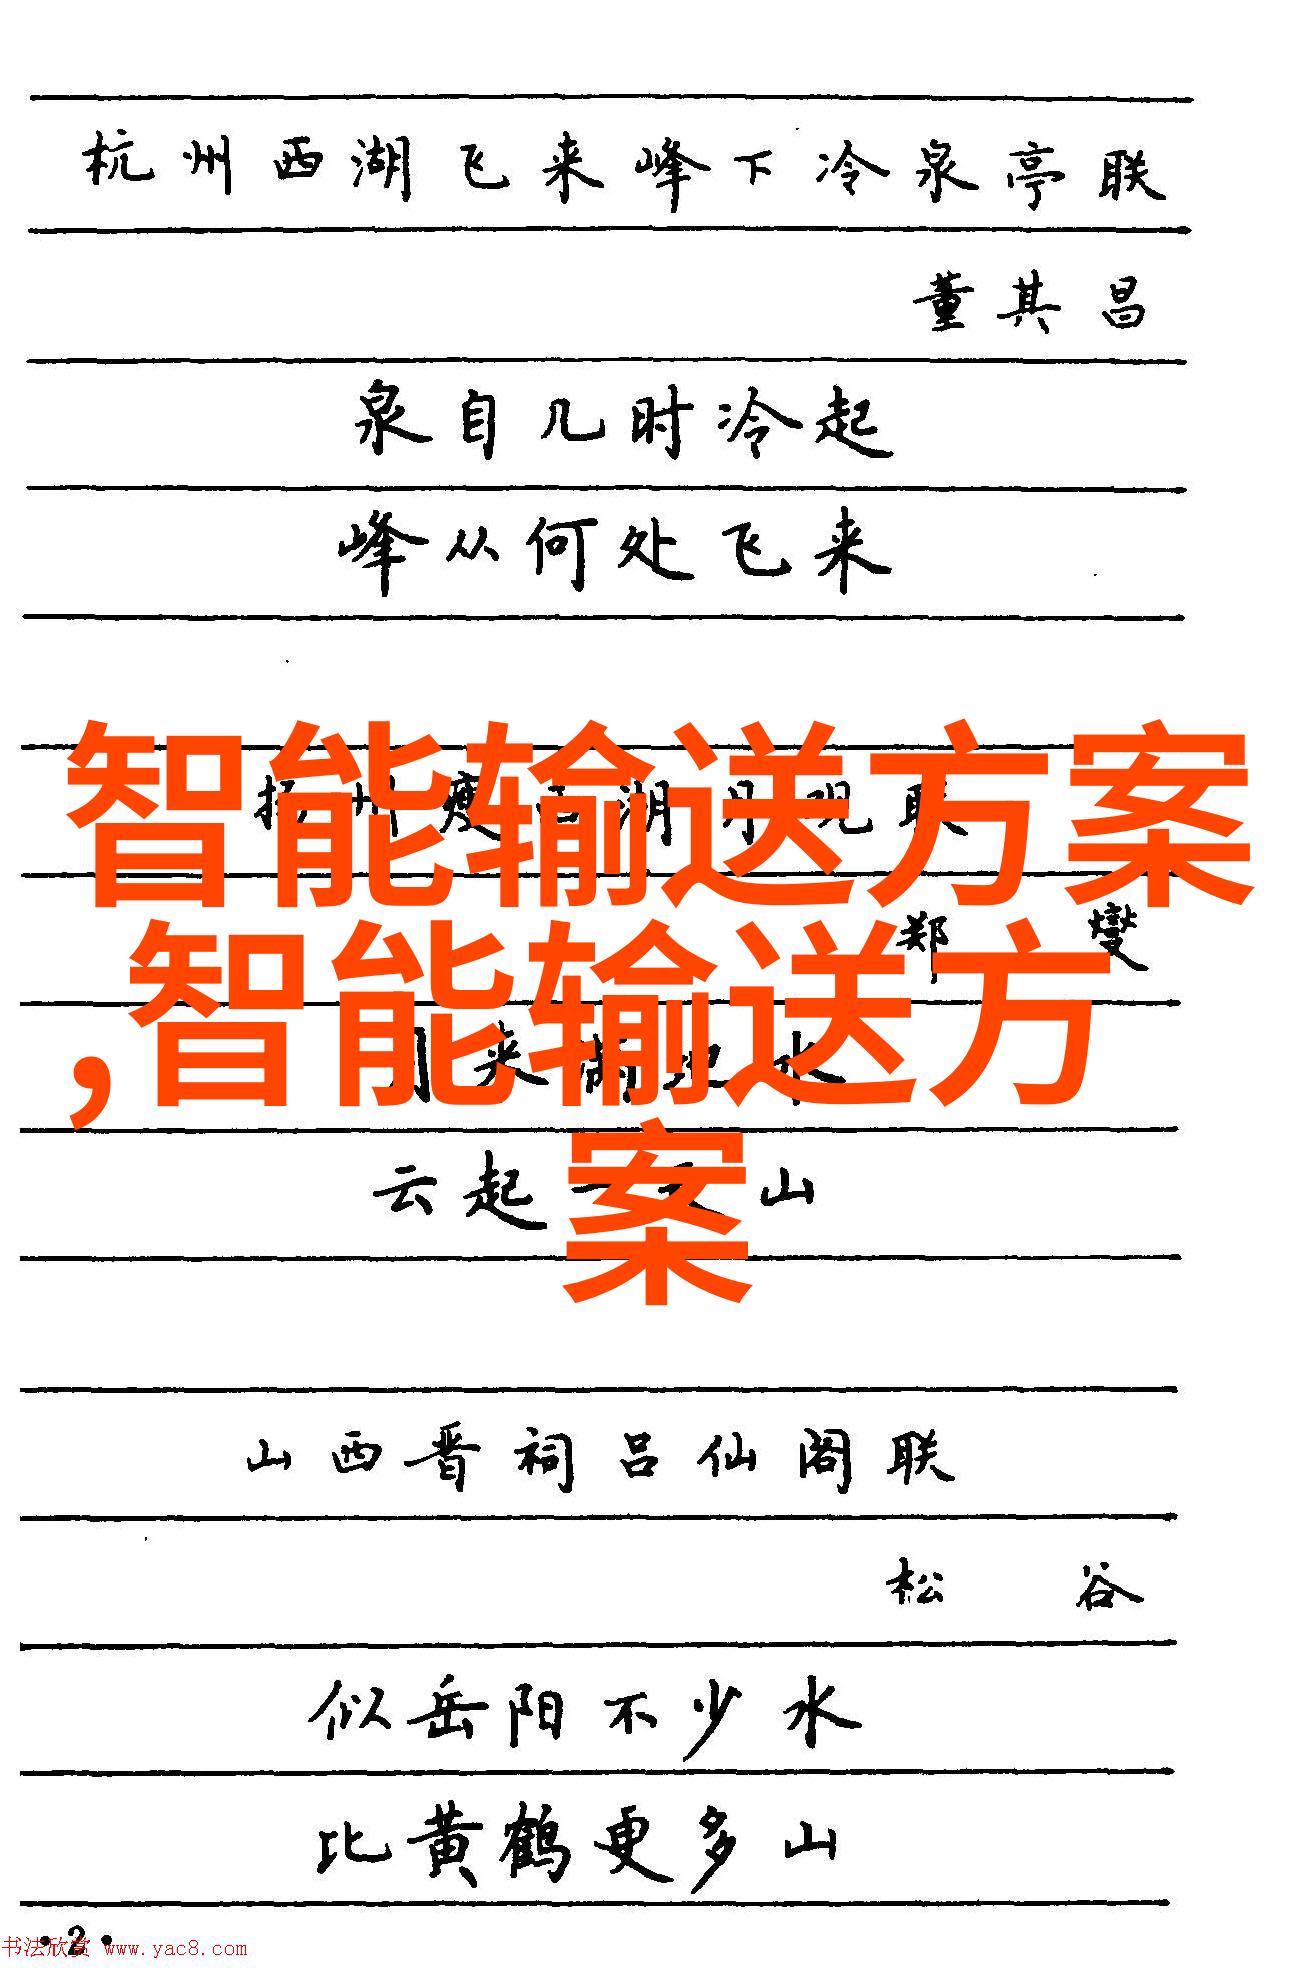 杭州西湖飞来峰下冷泉亭联
董其昌
泉自几时冷起
峰从何处飞来
智能输送方案
扬州瘦西湖月观联
郑燮
,智能输送方
月来满地水
案
云起一天山
山西晋祠吕仙阁联
松谷
似岳阳不少水
比黄鹤更多山
·2·
书法欣赏 www.yac8.com